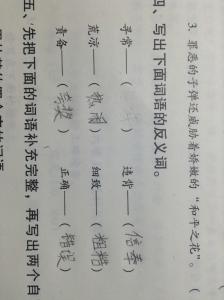 3. 罪恶的子弹还威胁着娇嫩的“和平之花”。(
四、写出下面词语的反义词。
寻常——( ) 违背——(信奉)
荒凉—— 细致——(粗糙)
责备——( ) 正确——(错误)
五、先把下面的词语补充完整，再写出两个自